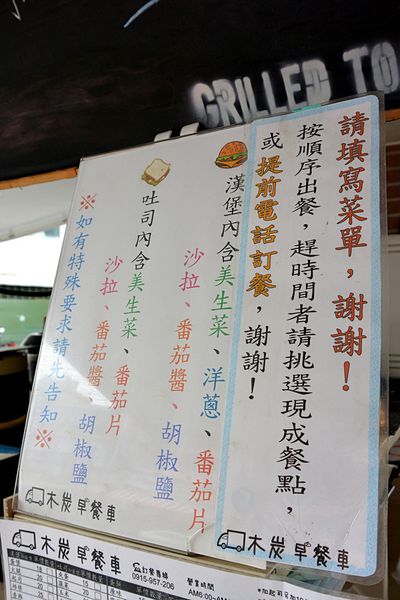 GRILLED TO
請填寫菜單，謝謝！
按順序出餐，趕時間者請挑選現成餐點，
或提前電話訂餐，謝謝！
漢堡內含美生菜、洋蔥、番茄片
沙拉、番茄醬、胡椒鹽
吐司內含美生菜、番茄片
沙拉、番茄醬、胡椒鹽
※如有特殊要求請先告知※
木炭早餐車
木炭早餐車
木炭早餐車
訂餐專線
0915-957-206
營業時間